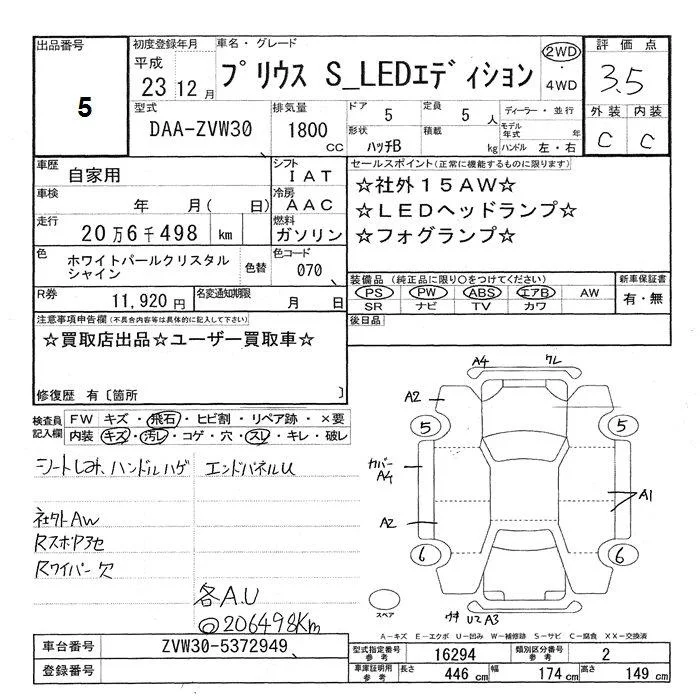 出品番号
5
初度登録年月
平成
23 12 月
車名・グレード
プリウス S_LEDエディション
2WD
・
4WD
評価点
3.5
型式
DAA-ZVW30
排気量
1800
cc
ドア
5
定員
5 人
形状
ハッチB
積載
kg
ディーラー・並行
モデル
年式
年
ハンドル 左・右
外装 内装
C C
車歴
自家用
シフト
IAT
車検
年 月( 日)
冷房
AAC
走行
20万6千498 km
燃料
ガソリン
色
ホワイトパールクリスタル
シャイン
色替
色コード
070
R券
11,920 円
名変通知期限
月 日
セールスポイント(正常に機能するものに限ります)
☆社外15AW☆
☆LEDヘッドランプ☆
☆フォグランプ☆
装備品(純正品に限り○をつけてください)
新車保証書
PS PW ABS エアB AW
SR ナビ TV カワ
有・無
後日品
注意事項申告欄(不具合内容等は具体的に記入して下さい)
☆買取店出品☆ユーザー買取車☆
修復歴 有〔箇所 〕
検査員
記入欄
FW キズ・飛石・ヒビ割・リペア跡・×要
内装 キズ・汚レ・コゲ・穴・スレ・キレ・破レ
シートしみ、ハンドルハゲ
エンドパネルU
社外AW
Rスポア色
Rワイパー欠
各A.U
◎206498Km
A4
ワレ
A2
5
5
カバー
A4
A1
A2
6
6
スペア
U2 A3
A－キズ E－エクボ U－凹み W－補修跡 S－サビ C－腐食 XX－交換済
車台番号
ZVW30-5372949
登録番号
型式指定番号
参考
16294
類別区分番号
参考
2
車庫証明用
参考
長さ
446 cm
幅
174 cm
高さ
149 cm